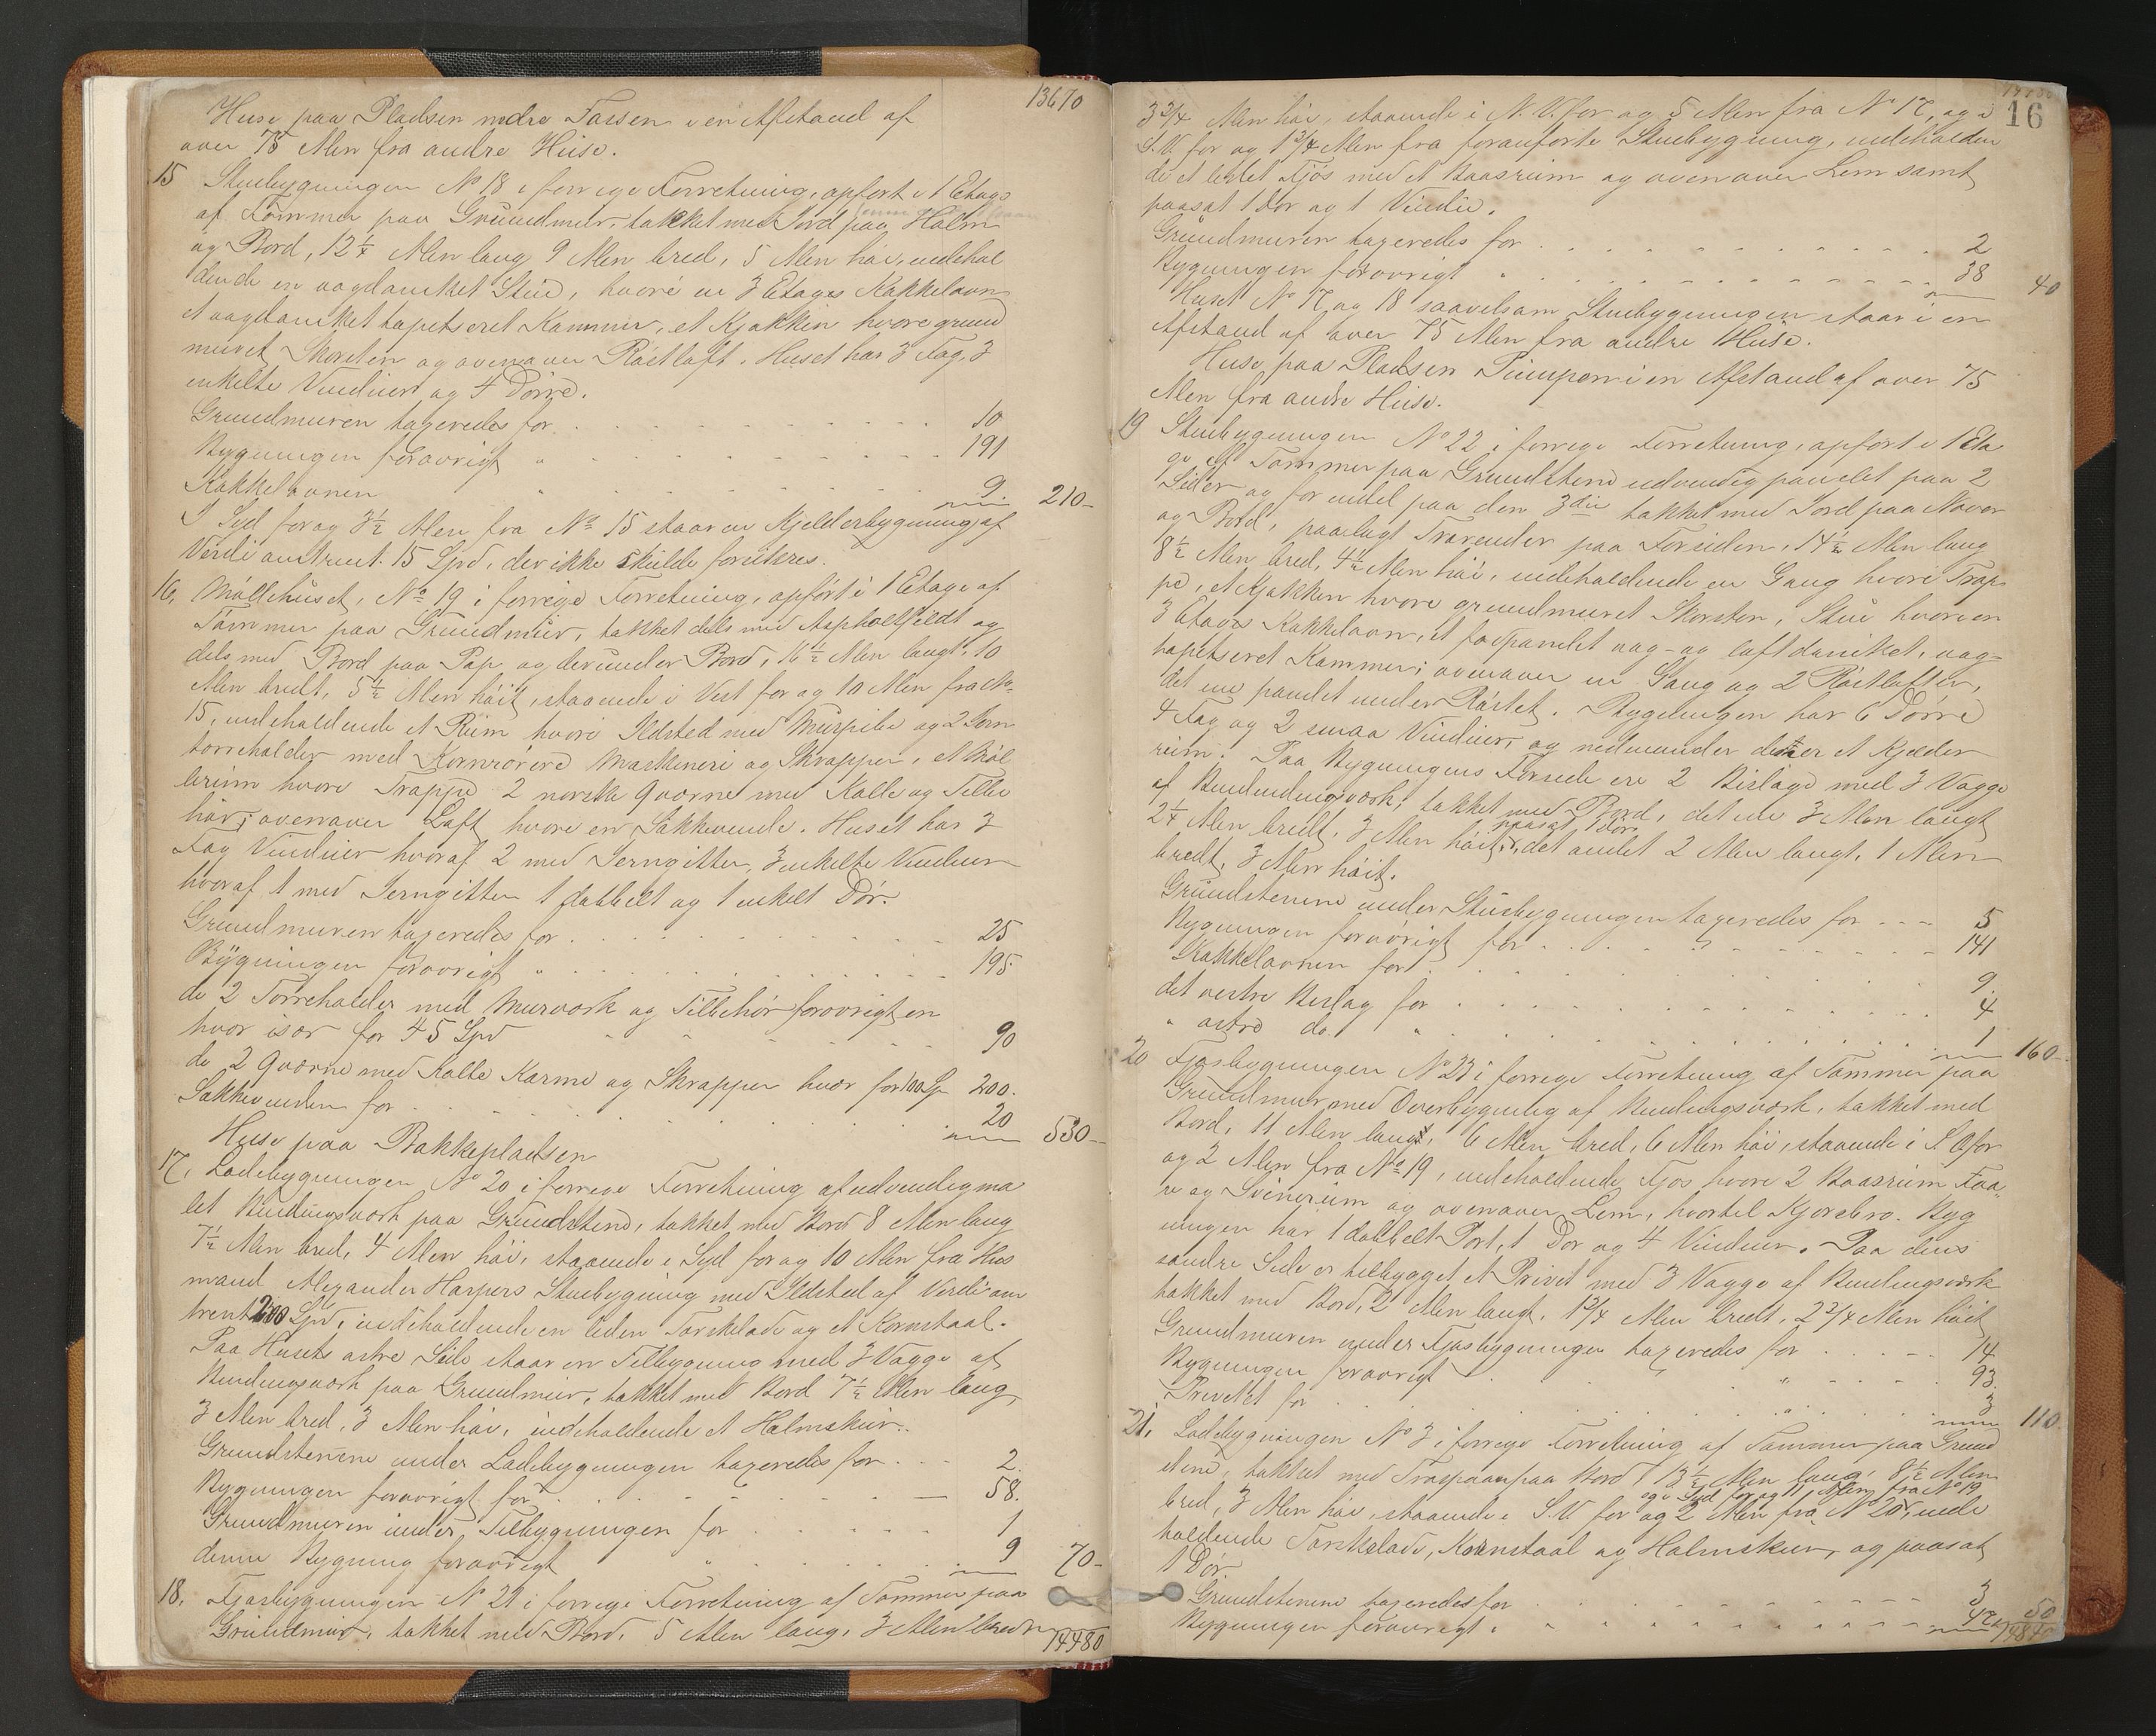 13670
Huse paa Pladsen nedre Fossen i en Afstand af
over 75 Alen fra andre Huse.
15 Stuebygningen No 18 i forrige Forretning, opført i 1 Etage
af Tømmer paa Grundmur, tækket med Jord paa Halm
og Bord, 12 1/4 Alen lang 9 Alen bred, 5 Alen høi, indehol
dende en vægdamsket Stue, hvori en 3 Etages Kakkelovn
et vægdamsket tapetseret Kammer, et Kjøkken hvori grund
muret Skorsten og ovenover Røstloft. Huset har 3 Fag, 3
enkelte Vinduer og 4 Dørre.
Grundmuren taxeredes for . . . 10
Bygningen forøvrigt " . . . 191
Kakkelovnen " . . . 9 210-
I Syd for og 3 1/2 Alen fra No 15 staar en Kjelderbygning af
Verdi omtrent 15 Spd, der ikke skulde forsikres.
16. Møllehuset, No 19 i forrige Forretning, opført i 1 Etage af
Tømmer paa Grundmur, tækket dels med Asphaltfildt og
dels med Bord paa Pap og derunder Bord, 16 1/2 Alen langt, 10
Alen bredt, 5 1/2 Alen høit, staaende i Vest for og 10 Alen fra No
15, indeholdende et Rum hvori Ildsted med Murpibe og 2 Korn
tørreholder med Kornrørere Maskineri og Skrapper, et Møl
lerum hvori Trappe 2 norske Qværne med Kalle og Tilbe
hør, ovenover Loft hvori en Sækkevinde. Huset har 3
Fag Vinduer hvoraf 2 med Jerngitter, 3 enkelte Vinduer
hvoraf 1 med Jerngitter 1 dobbelt og 1 enkelt Dør.
Grundmuren taxeredes for . . . 25
Bygningen forøvrigt " . . . 195
de 2 Tørreholder med Murværk og Tilbehør forøvrigt en
hvor især for 45 Spd . . . 90
de 2 Qværne med Kalle Karme og Skrapper hver for 100 Sp 200.
Sækkevinden for . . . 20 530-
Huse paa Bakkepladsen
17. Ladebygningen No 20 i forrige Forretning af udvendig ma
let Bindingsværk paa Grundstene, tækket med Bord 8 Alen lang
7 1/2 Alen bred, 4 Alen høi, staaende i Syd for og 10 Alen fra Hus
mand Alexander Harpers Stuebygning med Ildsted af Verdi om
trent 200 Spd, indeholdende en liden Tærskelade og et Kornstaal.
Paa Husets østre Side staar en Tilbygning med 3 Vægge af
Bindingsværk paa Grundmur, tækket med Bord 7 1/2 Alen lang,
3 Alen bred, 3 Alen høi, indeholdende et Halmskur.
Grundstenene under Ladebygningen taxeredes for . . . 2.
Bygningen forøvrigt for . . . 58.
Grundmuren under Tilbygningen for . . . 1
denne Bygning forøvrigt " . . . 9 70-
18. Fjøsbygningen No 21 i forrige Forretning af Tømmer paa
Grundmur, tækket med Bord, 5 Alen lang, 3 Alen bred
14480
16
3 3/4 Alen høi, staaende i N.V. for og 5 Alen fra No 17, og i
S.V. for og 1 3/4 Alen fra foranførte Stuebygning, indeholden
de et lidet Fjøs med et Baasrum og ovenover Lem samt
paasat 1 Dør og 1 Vindu.
Grundmuren taxeredes for . . . 2
Bygningen forøvrigt " . . . 38 40
Huset No 17 og 18 saavelsom Stuebygningen staar i en
Afstand af over 75 Alen fra andre Huse.
Huse paa Pladsen Pumpen i en Afstand af over 75
Alen fra andre Huse.
19 Stuebygningen No 22 i forrige Forretning, opført i 1 Eta
ge af Tømmer paa Grundstene udvendig panelet paa 2
Sider og for endel paa den 3die tækket med Jord paa Næver
og Bord, paalagt Tærender paa Forsiden, 14 1/2 Alen lang
8 1/2 Alen bred, 4 1/2 Alen høi, indeholdende en Gang hvori Trap
pe, et Kjøkken hvori grundmuret Skorsten, Stue hvori en
3 Etages Kakkelovn, et fodpanelet væg- og loftdamsket, væg-
tapetseret Kammer; ovenover en Gang og 2 Røstlofter,
det ene panelet under Røstet. Bygningen har 6 Dørre
4 Fag og 2 smaa Vinduer, og nedenunder den er et Kjelder
rum. Paa Bygningens Forside ere 2 Bislage med 3 Vægge
af Bindingsværk, tækket med Bord, det ene 3 Alen langt
2 1/4 Alen bredt, 3 Alen høit, paasat 1 Dør, det andet 2 Alen langt, 1 Alen
bredt, 3 Alen høit.
Grundstenene under Stuebygningen taxeredes for . . . 5
Bygningen forøvrigt for . . . 141
Kakkelovnen for . . . 9.
det vestre Bislag for . . . 4
" østre do. " . . . 1 160-
20 Fjøsbygningen No 23 i forrige Forretning af Tømmer paa
Grundmur med Overbygning af Bindingsværk, tækket med
Bord, 11 Alen lang, 6 Alen bred, 6 Alen høi, staaende i S.O for
og 2 Alen fra No 19, indeholdende Fjøs hvori 2 Baasrum Faa
re og Svinerum og ovenover Lem, hvortil Kjørebro. Byg
ningen har 1 dobbelt Port, 1 Dør og 4 Vinduer. Paa dens
søndre Side er tilbygget et Privet med 3 Vægge af Bindingsværk
tækket med Bord, 2 Alen langt, 1 3/4 Alen bredt, 2 3/4 Alen høit
Grundmuren under Fjøsbygningen taxeredes for . . . 14
Bygningen forøvrigt " . . . 93
Privetet for " . . . 3 110
21. Ladebygningen No 3 i forrige Forretning af Tømmer paa Grund
stene, tækket med Træspaan paa Bord, 13 1/2 Alen lang, 8 1/2 Alen
bred, 3 Alen høi, staaende i S.V for og 2 Alen fra No 20, og i Syd for og 11 Alen fra No 19, inde
holdende Tærskelade, Kornstaal og Halmskur, og paasat
1 Dør.
Grundstenene taxeredes for . . . 3
Bygningen forøvrigt " . . . 47 50
14840